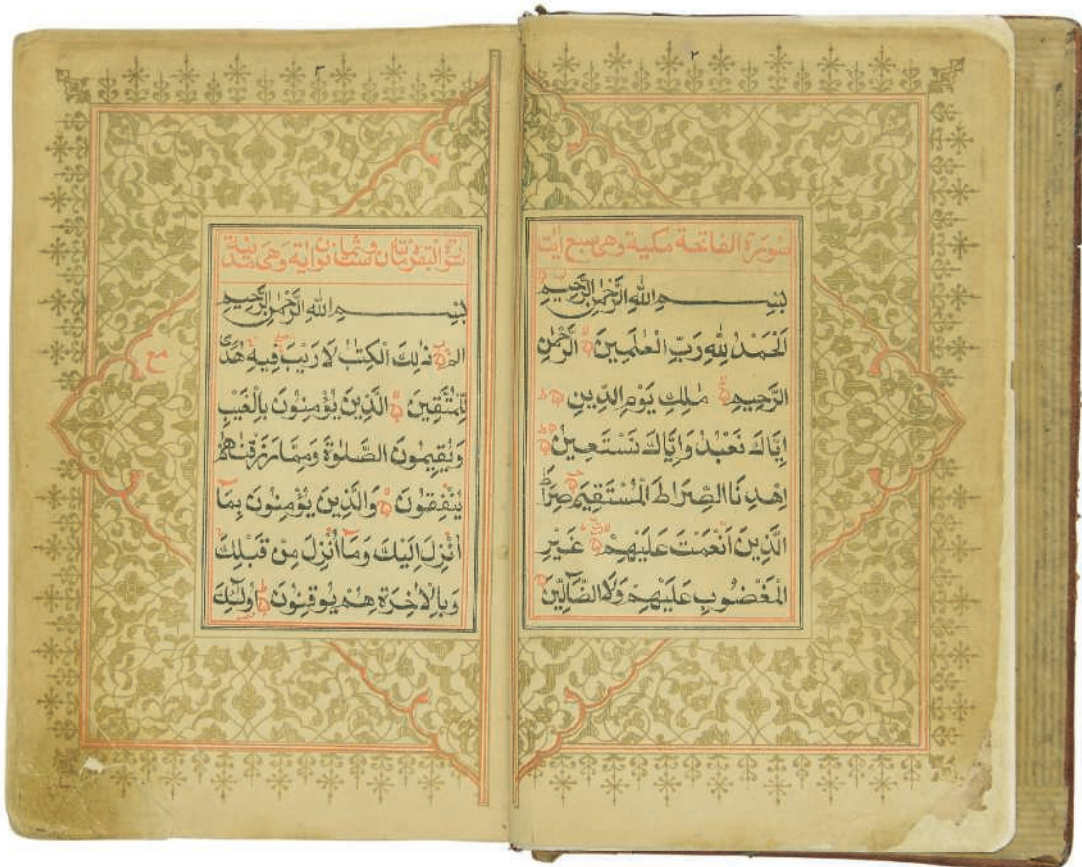 ٢
سورة الفاتحة مكية وهى سبع ايت
بِسْمِ اللهِ الرَّحْمٰنِ الرَّحِيْمِ
اَلْحَمْدُ لِلّٰهِ رَبِّ الْعٰلَمِيْنَ الرَّحْمٰنِ
الرَّحِيْمِ مٰلِكِ يَوْمِ الدِّيْنِ
اِيَّاكَ نَعْبُدُ وَاِيَّاكَ نَسْتَعِيْنُ
اِهْدِنَا الصِّرَاطَ الْمُسْتَقِيْمَ صِرَاطَ
الَّذِيْنَ اَنْعَمْتَ عَلَيْهِمْ غَيْرِ
الْمَغْضُوْبِ عَلَيْهِمْ وَلَا الضَّآلِّيْنَ
٣
سورة البقرة مائتان وست وثمانون اية وهى مدنية
بِسْمِ اللهِ الرَّحْمٰنِ الرَّحِيْمِ
الم ذٰلِكَ الْكِتٰبُ لَا رَيْبَ فِيْهِ هُدًى
لِّلْمُتَّقِيْنَ الَّذِيْنَ يُؤْمِنُوْنَ بِالْغَيْبِ
وَيُقِيْمُوْنَ الصَّلٰوةَ وَمِمَّا رَزَقْنٰهُمْ
يُنْفِقُوْنَ وَالَّذِيْنَ يُؤْمِنُوْنَ بِمَآ
اُنْزِلَ اِلَيْكَ وَمَآ اُنْزِلَ مِنْ قَبْلِكَ
وَبِالْاٰخِرَةِ هُمْ يُوْقِنُوْنَ اُولٰٓئِكَ
مع